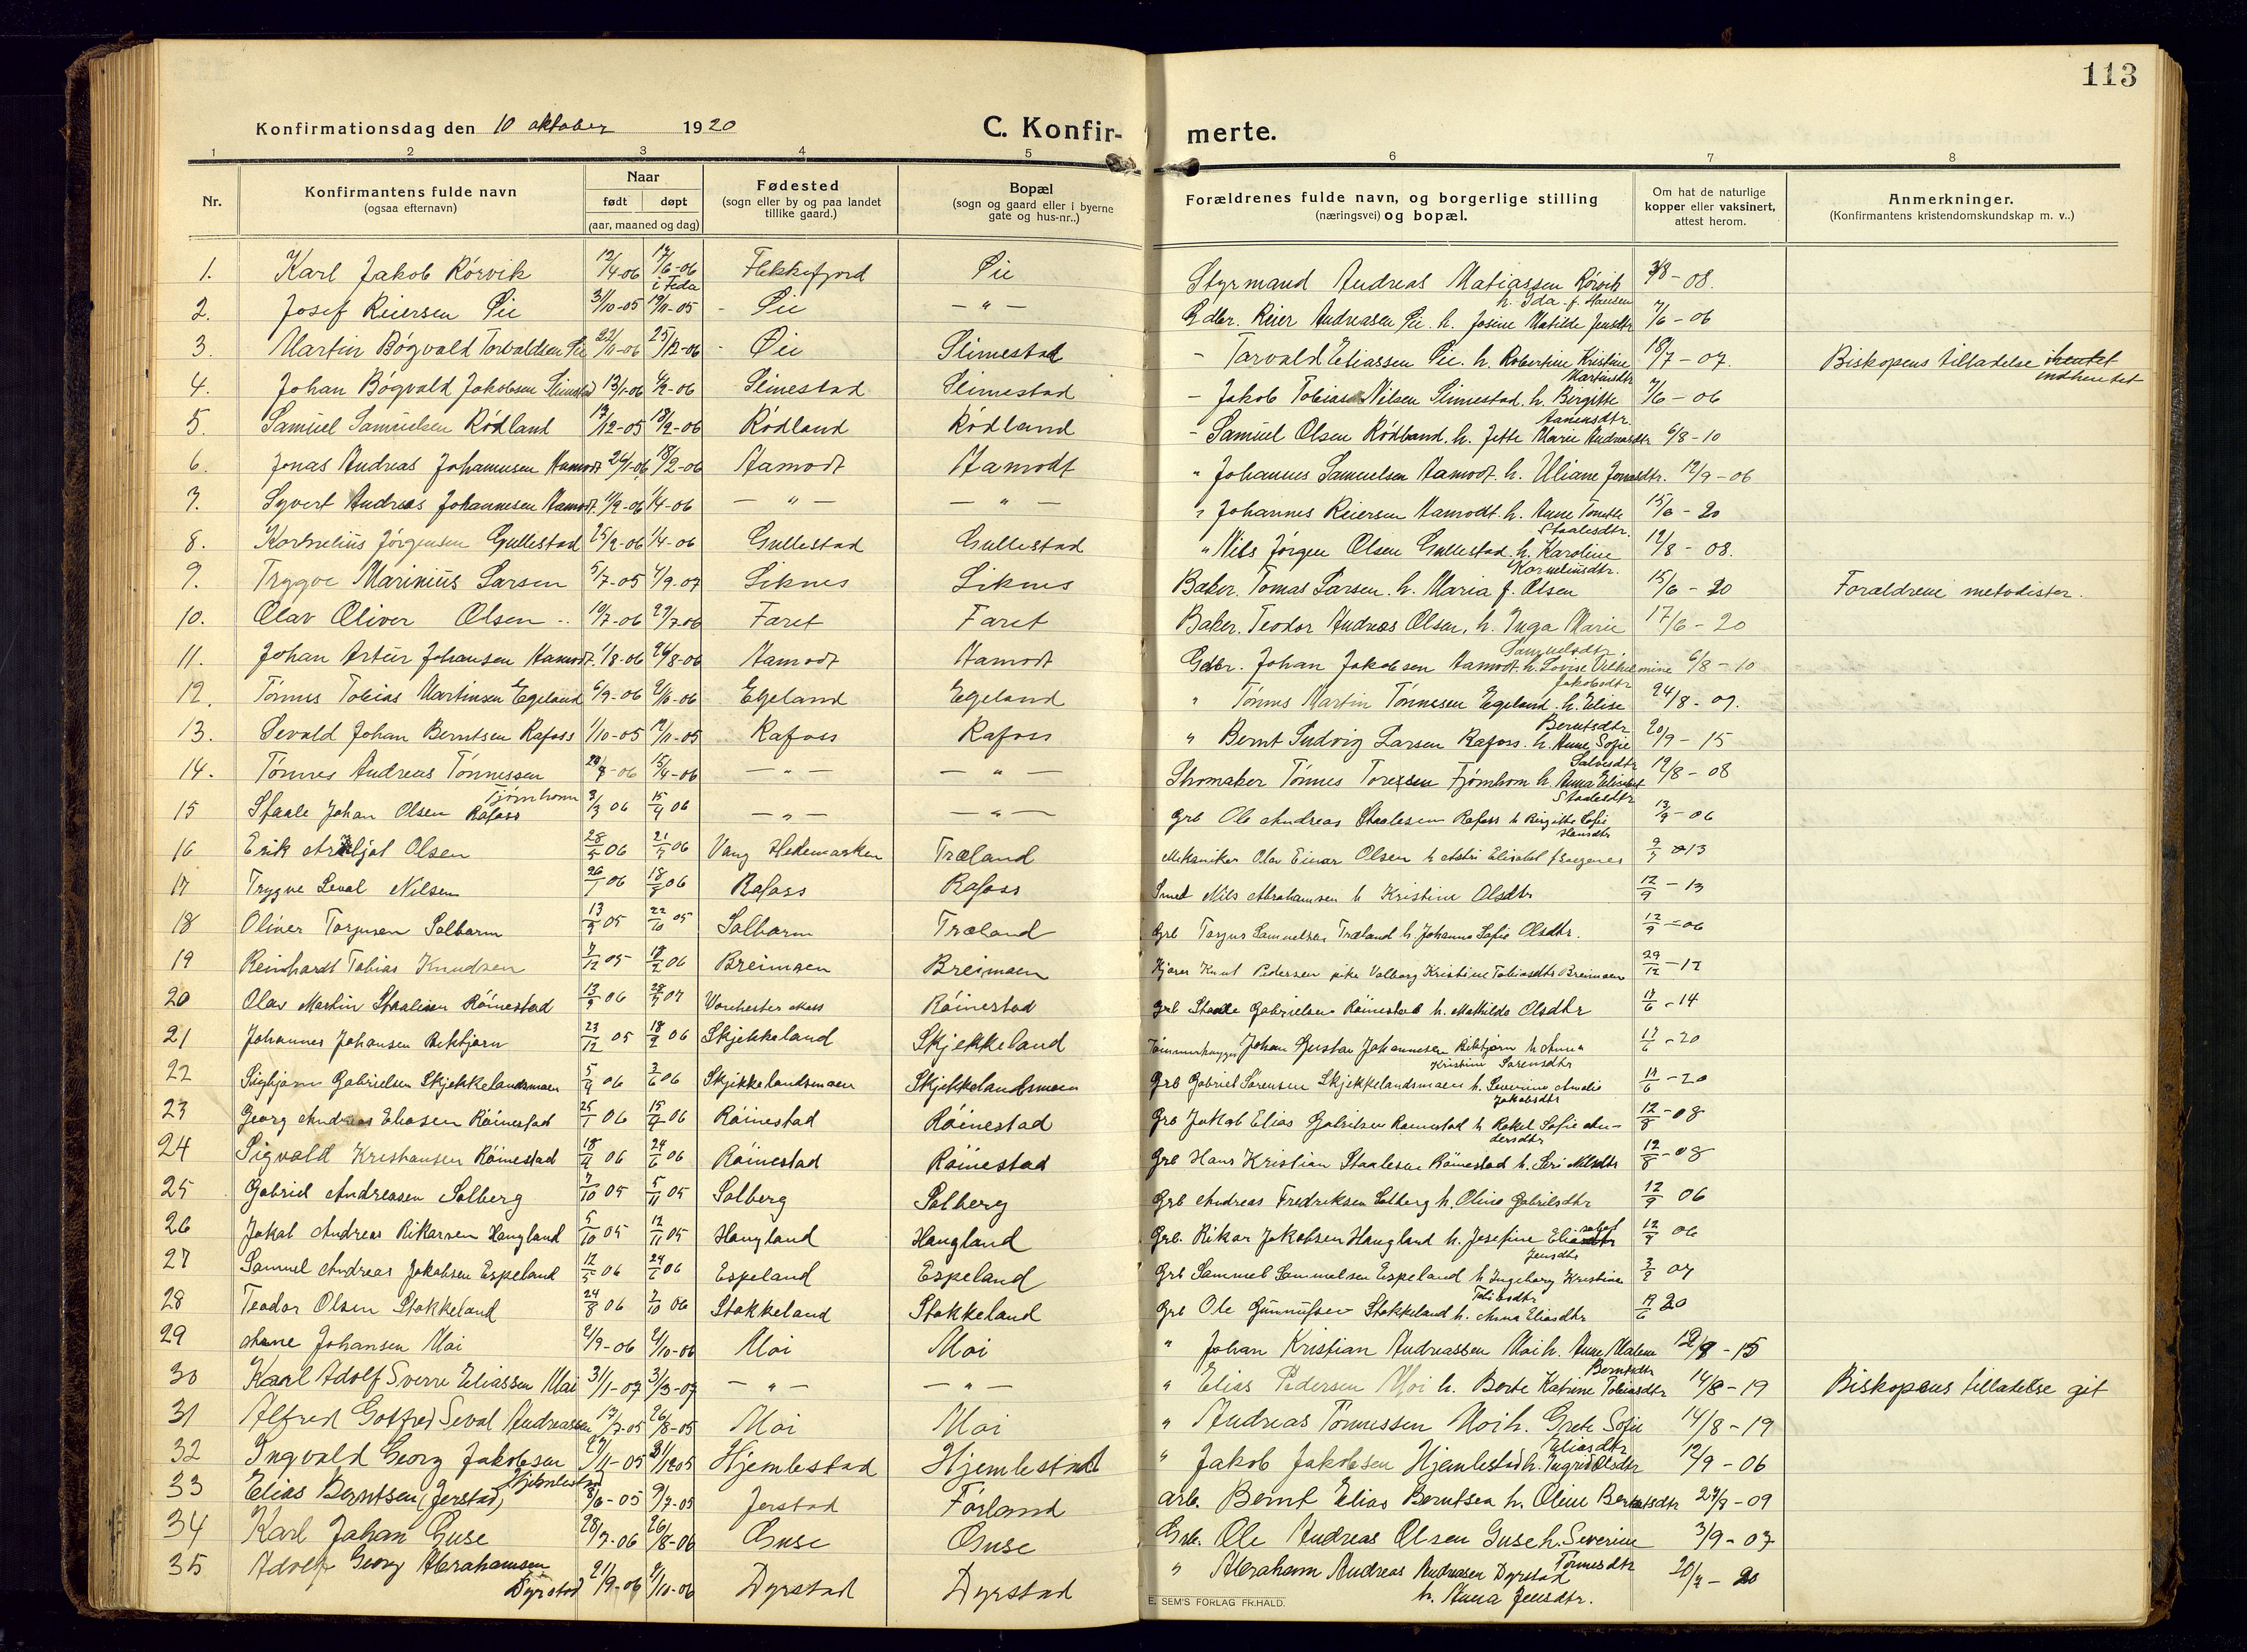 113
Konfirmationsdag den 10 oktober 1920
C. Konfir-
merte.
1 2 3 4 5 6 7 8
Nr.
Konfirmantens fulde navn
(ogsaa efternavn)
Naar
født døpt
(aar, maaned og dag)
Fødested
(sogn eller by og paa landet
tillike gaard.)
Bopæl
(sogn og gaard eller i byerne
gate og hus-nr..)
Forældrenes fulde navn, og borgerlige stilling
(næringsvei) og bopæl.
Om hat de naturlige
kopper eller vaksinert,
attest herom.
Anmerkninger.
(Konfirmantens kristendomskundskap m. v..)
1. Karl Jakob Rórvik 12/4-06 17/6-06 i Feda Flekkefjord Øie Styrmand Andreas Matiassen Rórvik h. Ida f. Hansen 3/8-08.
2. Josef Reiersen Øie 31/10-05 19/11-05 - Øie -"- Gdbr. Reier Andreasen Øie. h. Josine Matilde Jensdtr 7/6-06
3. Martin Bógvald Torvaldsen Øie 22/11-06 25/12-06 - Øie Slimestad - Tarvald Eliassen Øie. h. Robertine Kristine Martinsdtr 18/7-07. Biskopens tilladelse indhentet
4. Johan Bógvald Jakobsen Slimestad 13/1-06 4/2-06 Slimestad Slimestad - Jakob Tobias Nilsen Slimestad. h. Birgitte Aanensdtr. 7/6-06
5. Samuel Samuelsen Ródland 17/12-05 18/2-06 Ródland Ródland - Samuel Olsen Ródland. h. Jette Marie Andreasdtr 6/8-10
6. Jonas Andreas Johannesen Aamodt 24/1-06 18/2-06 Aamodt Aamodt " Johannes Samuelsen Aamodt. h. Uliane Jonasdtr. 12/9-06
7. Syvert Andreas Johannesen Aamodt. 11/2-06 1/4-06 -"- -"- " Johannes Reiersen Aamodt. h. Anne Tomette Staalesdtr. 15/6-20
8. Kornelius Jórgensen Gullestad 25/2-06 1/4-06 Gullestad Gullestad " Nils Jórgen Olsen Gullestad. h. Karoline Korneliusdtr. 12/8-08.
9. Trygve Marinius Larsen 5/7-05 4/9-07 Liknes Liknes Baker. Tomas Larsen. h. Maria f. Olsen 15/6-20 Forældrene metodister.
10. Olav Oliver Olsen 10/7-06 29/7-06 Faret Faret Baker. Teodor Andreas Olsen. h. Inga Marie Samuelsdtr. 17/6-20
11. Johan Artur Johansen Aamodt. 1/8-06 26/8-06 Aamodt Aamodt Gdbr. Johan Jakobsen Aamodt. h. Lovise Vilhelmine Jakobsdtr 6/8-10
12. Tónnes Tobias Martinsen Egeland 6/9-06 Egeland Egeland " Tónnes Martin Tónnesen Egeland. h. Elise Berntsdtr 24/8-07.
13. Sevald Johan Berntsen Rafoss 1/10-05 12/11-05 Rafoss Rafoss " Bernt Ludvig Larsen Rafoss. h. Anne Sofie Salvesdtr 20/9-15
14. Tónnes Andreas Tónnessen Fjórnhom 15/4-06 -"- -"- Skomaker Tónnes Toresen Fjórnhom h. Anna Elisabet Staalesdtr 12/8-08
15 Staale Johan Olsen Rafoss 3/3 06 15/4 06 -"- -"- Grb Ole Andreas Staalesen Rafoss h Birgitte Sofie Hansdtr 12/9-06
16 Erik Olsen 28/5 06 21/7 06 Vang Hedemarken Træland Mekaniker Olav Einar Olsen h Astri Elisabet 13
17 Trygve Seval Nilsen 26/1 06 18/8 06 Rafoss Rafoss Smed Nils Abrahamsen h Kristine Olsdtr 12/9-13
18 Oliver Torjusen Solbarm 13/9 05 22/10 05 Solbarm Træland Grb Torjus Samuelsen Træland h Johanne Sofie Olsdtr. 12/9-06
19 Reinhardt Tobias Knudsen 7/12 05 18/2 06 Breimoen Breimoen Knut Pedersen pike Valborg Kristine Tobiasdtr Breimoen 29/12-12
20 Olav Martin Staalesen Róinestad 06 07 Róinestad Grb Staale Gabrielsen Róinestad h. Mathilde Olsdtr 17/6-14
21 Johannes Johansen Birkbjorn 23/12 05 18/2 06 Skjekkeland Skjekkeland Tómmerhugger Johan Gustav Johannesen h Anna Kristine Sorensdtr 17/6-20
22 Sigbjorn Gabrielsen Skjekkelandsmoen 5/4 06 3/6 06 Skjekkelandsmoen Skjekkelandsmoen Grb Gabriel Sórensen Skjekkelandsmoen h. Severine Amalie Jakobsdtr 17/6-20
23 Georg Andreas Eliasen Róinestad 25/1 06 15/4 06 Róinestad Róinestad Grb Jakob Elias Gabrielsen Róinestad h Rakel Sofie An-dersdtr 12/8-08
24 Sigvald Kristiansen Róinestad 18/4 06 24/6 06 Róinestad Róinestad Grb Hans Kristian Staalesen Róinestad h. Siri Nilsdtr 12/8-08
25 Gabriel Andreasen Solberg 7/10 05 5/11 05 Solberg Solberg Grb Andreas Fredriksen Solberg h. Oline Gabrielsdtr 12/9 06
26 Jakob Andreas Rikarsen Haugland 5/10 05 12/11 05 Haugland Haugland Grb. Rikar Jakobsen Haugland h. Josefine Elisabet Jensdtr 12/9 06
27 Samuel Andreas Jakobsen Espeland 12/5 06 24/6 06 Espeland Espeland Grb Sammel Sammelsen Espeland h Ingeborg Kristine Tobiasdtr 07
28 Teodor Olsen Stokkeland 24/8 06 7/10 06 Stokkeland Stokkeland Grb Ole Gunnufsen Stokkeland h. Anna Eliasdtr 20
29 Arne Johansen Moi 2/9-06 Moi Moi " Johan Kristian Andreassen Moi h. Anne Malene Berntsdtr 12/8-15
30 Karl Adolf Sverre Eliassen Moi 31/1-07 31/3-07 -"- -"- " Elias Pedersen Moi h. Berte Katrine Tobiasdtr 14/8-19 Biskopens tilladelse git
31 Alfred Gotfred Seval Andreassen 17/7-05 26/8-05 Moi Moi " Andreas Tónnessen Moi h. Grete Sofie Eliasdtr 14/8-19
32 Ingvald Georg Jakobsen Hjemlestad 27/11-05 31/12 05 Hjemlestad Hjemlestad " Jakob Jakobsen Hjemlestad h. Ingrid Olsdtr 12/9-06
33 Elias Berntsen (Jerstad) 8/6-05 9/7-05 Jerstad Fórland arb. Bernt Elias Berntsen h. Oline Berntsdtr 27/9-09
34 Karl Johan Guse 28/7-06 26/8-06 Guse Guse Grb. Ole Andreas Olsen Guse h. Severine Tónnesdtr 3/9-07
35 Adolf Georg Abrahamsen Dyrstad 21/9-06 Dyrstad Dyrstad " Abraham Andreas Andreasen Dyrstad h. Anna Jensdtr. 20
E. SEM'S FORLAG FR.HALD.